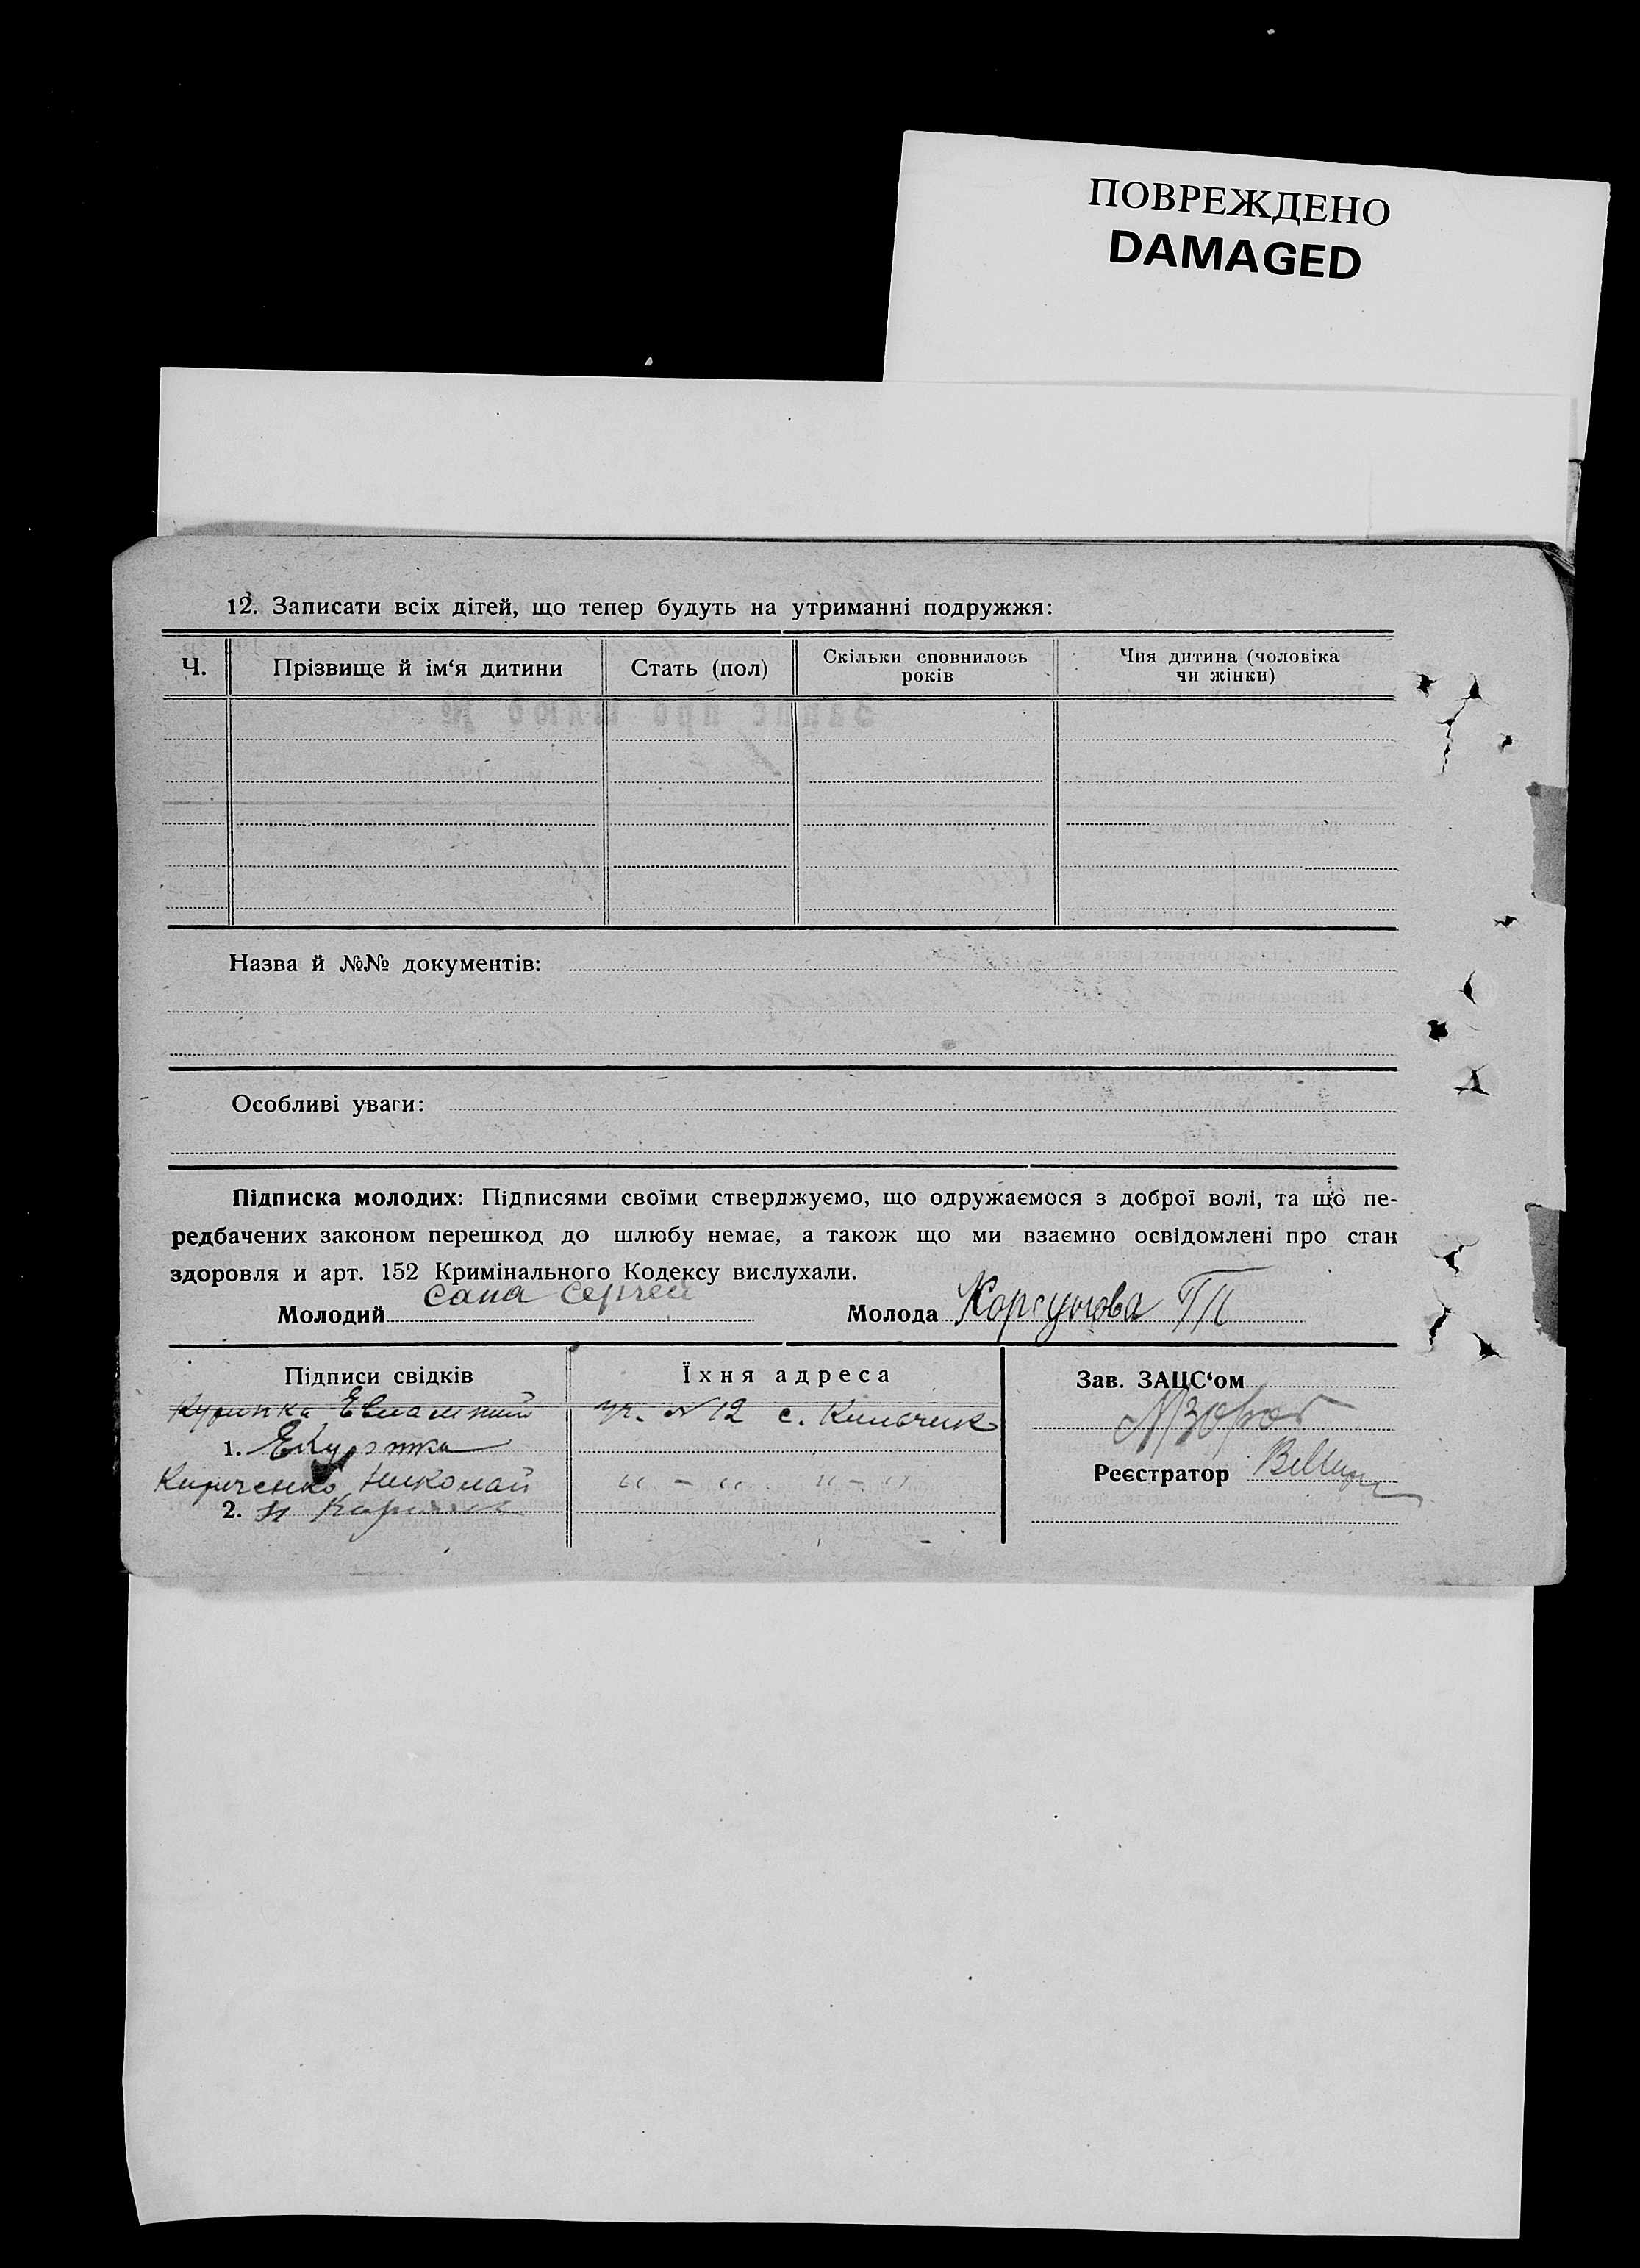 ПОВРЕЖДЕНО
DAMAGED
12. Записати всіх дітей, що тепер будуть на утриманні подружжя:
Ч. Прізвище й ім‘я дитини Стать (пол) Скільки сповнилось років Чия дитина (чоловіка чи жінки)
Назва й №№ документів:
Особливі уваги:
Підписка молодих: Підписями своїми стверджуємо, що одружаємося з доброї волі, та що пе-
редбачених законом перешкод до шлюбу немає, а також що ми взаємно освідомлені про стан
здоровля и арт. 152 Кримінального Кодексу вислухали.
Молодий Сапа Сергей Молода Корсунова ТП
Підписи свідків Їхня адреса Зав. ЗАЦС‘ом
уч. №12 с.
1.
Кириченко Николай " - " " - " Реєстратор
2. Н